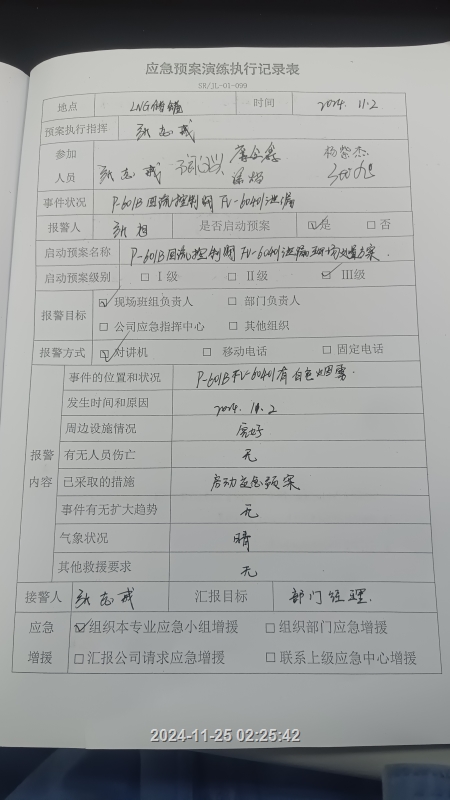 应急预案演练执行记录表
SR/JL-01-099
地点 LNG储罐 时间 2024.11.2
预案执行指挥 张志成
参加 人员 张志成 杨紫杰
事件状况 P-601B回流控制阀FV-60401泄漏
报警人 张旭 是否启动预案 ☑是 □否
启动预案名称 P-601B回流控制阀FV-60401泄漏现场处置方案.
启动预案级别 □Ⅰ级 □Ⅱ级 ☑Ⅲ级
报警目标 ☑现场班组负责人 □部门负责人
□公司应急指挥中心 □其他组织
报警方式 ☑对讲机 □移动电话 □固定电话
报警 内容
事件的位置和状况 P-601B FV-60401有白色烟雾.
发生时间和原因 2024.11.2
周边设施情况 完好
有无人员伤亡 无
已采取的措施 启动应急预案
事件有无扩大趋势 无
气象状况 晴
其他救援要求 无
接警人 张志成 汇报目标 部门经理.
应急 ☑组织本专业应急小组增援 □组织部门应急增援
增援 □汇报公司请求应急增援 □联系上级应急中心增援
2024-11-25 02:25:42